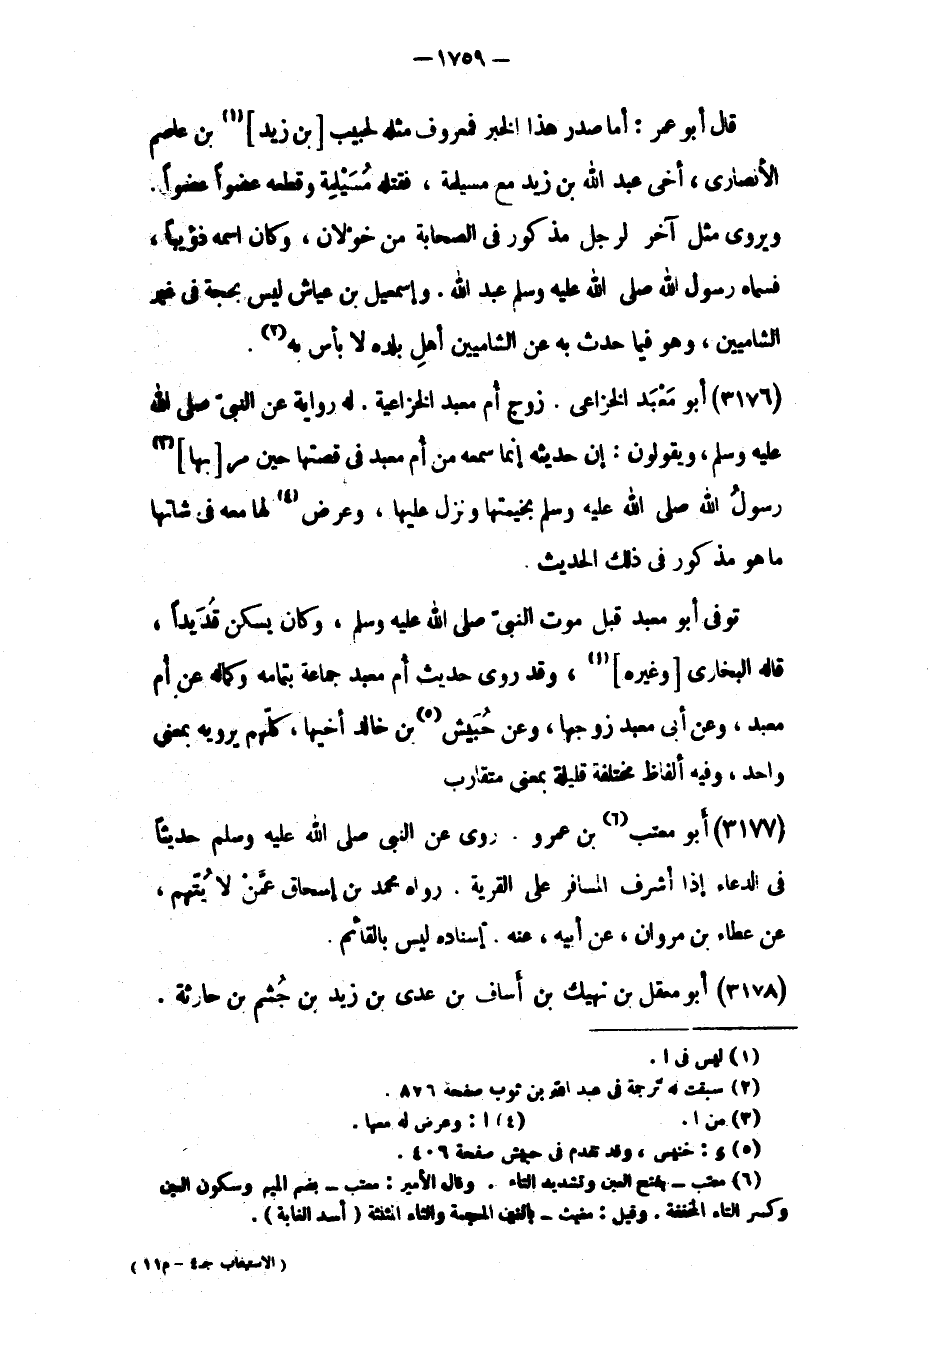 — ١٧٥٩ —
قال أبو عمر : أما صدر هذا الخبر فمعروف مثله لحبيب [ بن زيد ](١) بن عاصم
الأنصارى ، أخى عبد الله بن زيد مع مسيلمة ، فقتله مُسَيْلِمة وقطعه عضواً عضواً .
ويروى مثل آخر لرجل مذكور فى الصحابة من خولان ، وكان اسمه ذؤيباً ،
فسماه رسول الله صلى الله عليه وسلم عبد الله . وإسمعيل بن عياش ليس بحجة فى غير
الشاميين ، وهو فيما حدث به عن الشاميين أهلِ بلده لا بأس به(٢) .
(٣١٧٦) أبو مَعْبَد الخزاعى . زوج أم معبد الخزاعية . له رواية عن النبىّ صلى الله
عليه وسلم ، ويقولون : إن حديثه إنما سمعه من أم معبد فى قصتها حين مر [ بها ](٣)
رسولُ الله صلى الله عليه وسلم بخيمتها ونزل عليها ، وعرض(٤) لها معه فى شاتها
ما هو مذكور فى ذلك الحديث .
توفى أبو معبد قبل موت النبىّ صلى الله عليه وسلم ، وكان يسكن قُدَيداً ،
قاله البخارى [ وغيره ](١) ، وقد روى حديث أم معبد جماعة بتمامه وكماله عن أم
معبد ، وعن أبى معبد زوجها ، وعن حُبَيش(٥) بن خالد أخيها ، كلّهم يرويه بمعنى
واحد ، وفيه ألفاظ مختلفة قليلة بمعنى متقارب
(٣١٧٧) أبو معتب(٦) بن عمرو . روى عن النبى صلى الله عليه وسلم حديثاً
فى الدعاء إذا أشرف المسافر على القرية . رواه محمد بن إسحاق عمَّنْ لا يُتهم ،
عن عطاء بن مروان ، عن أبيه ، عنه . إسناده ليس بالقائم .
(٣١٧٨) أبو معقل بن نهيك بن أساف بن عدى بن زيد بن جُشم بن حارثة .
(١) ليس فى ا .
(٢) سبقت له ترجمة فى عبد الله بن ثوب صفحة ٨٧٦ .
(٣) من ا . (٤) ا : وعرض له معها .
(٥) ى : خنيس ، وقد تقدم فى حبيش صفحة ٤٠٦ .
(٦) معتب — بفتح العين وتشديد التاء . وقال الأمير : معتب — بضم الميم وسكون العين
وكسر التاء المخففة . وقيل : مغيث — بالغين المعجمة والثاء المثلثة ( أسد الغابة ) .
( الاستيعاب جـ٤ – م١١ )